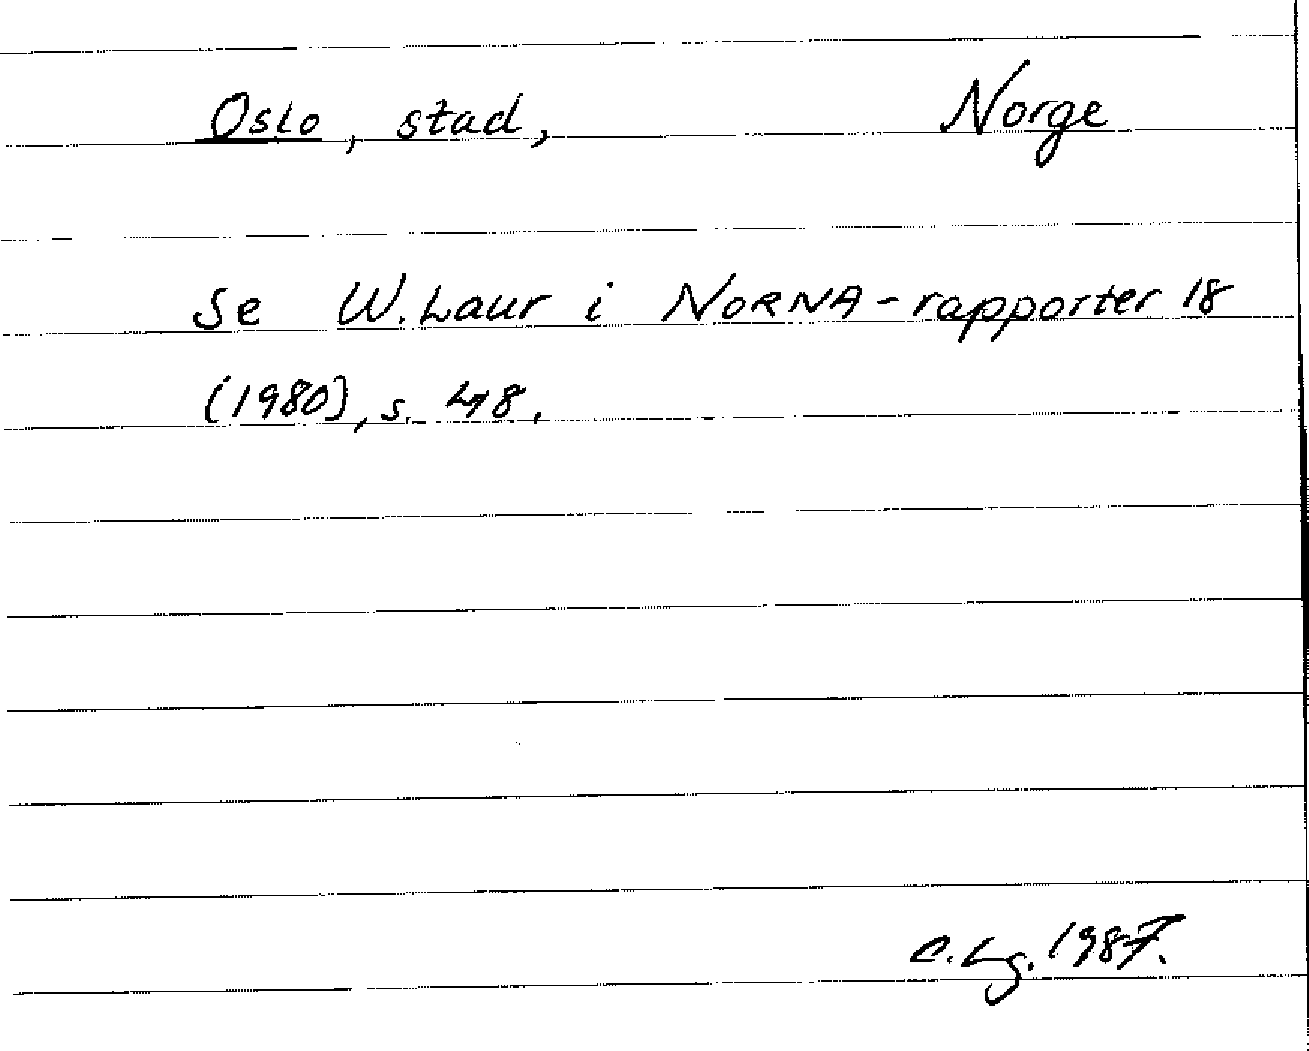 Oslo, stad, Norge
Se W. Laur i NORNA-rapporter 18
(1980), s. 48.
C. Lg. 1987.